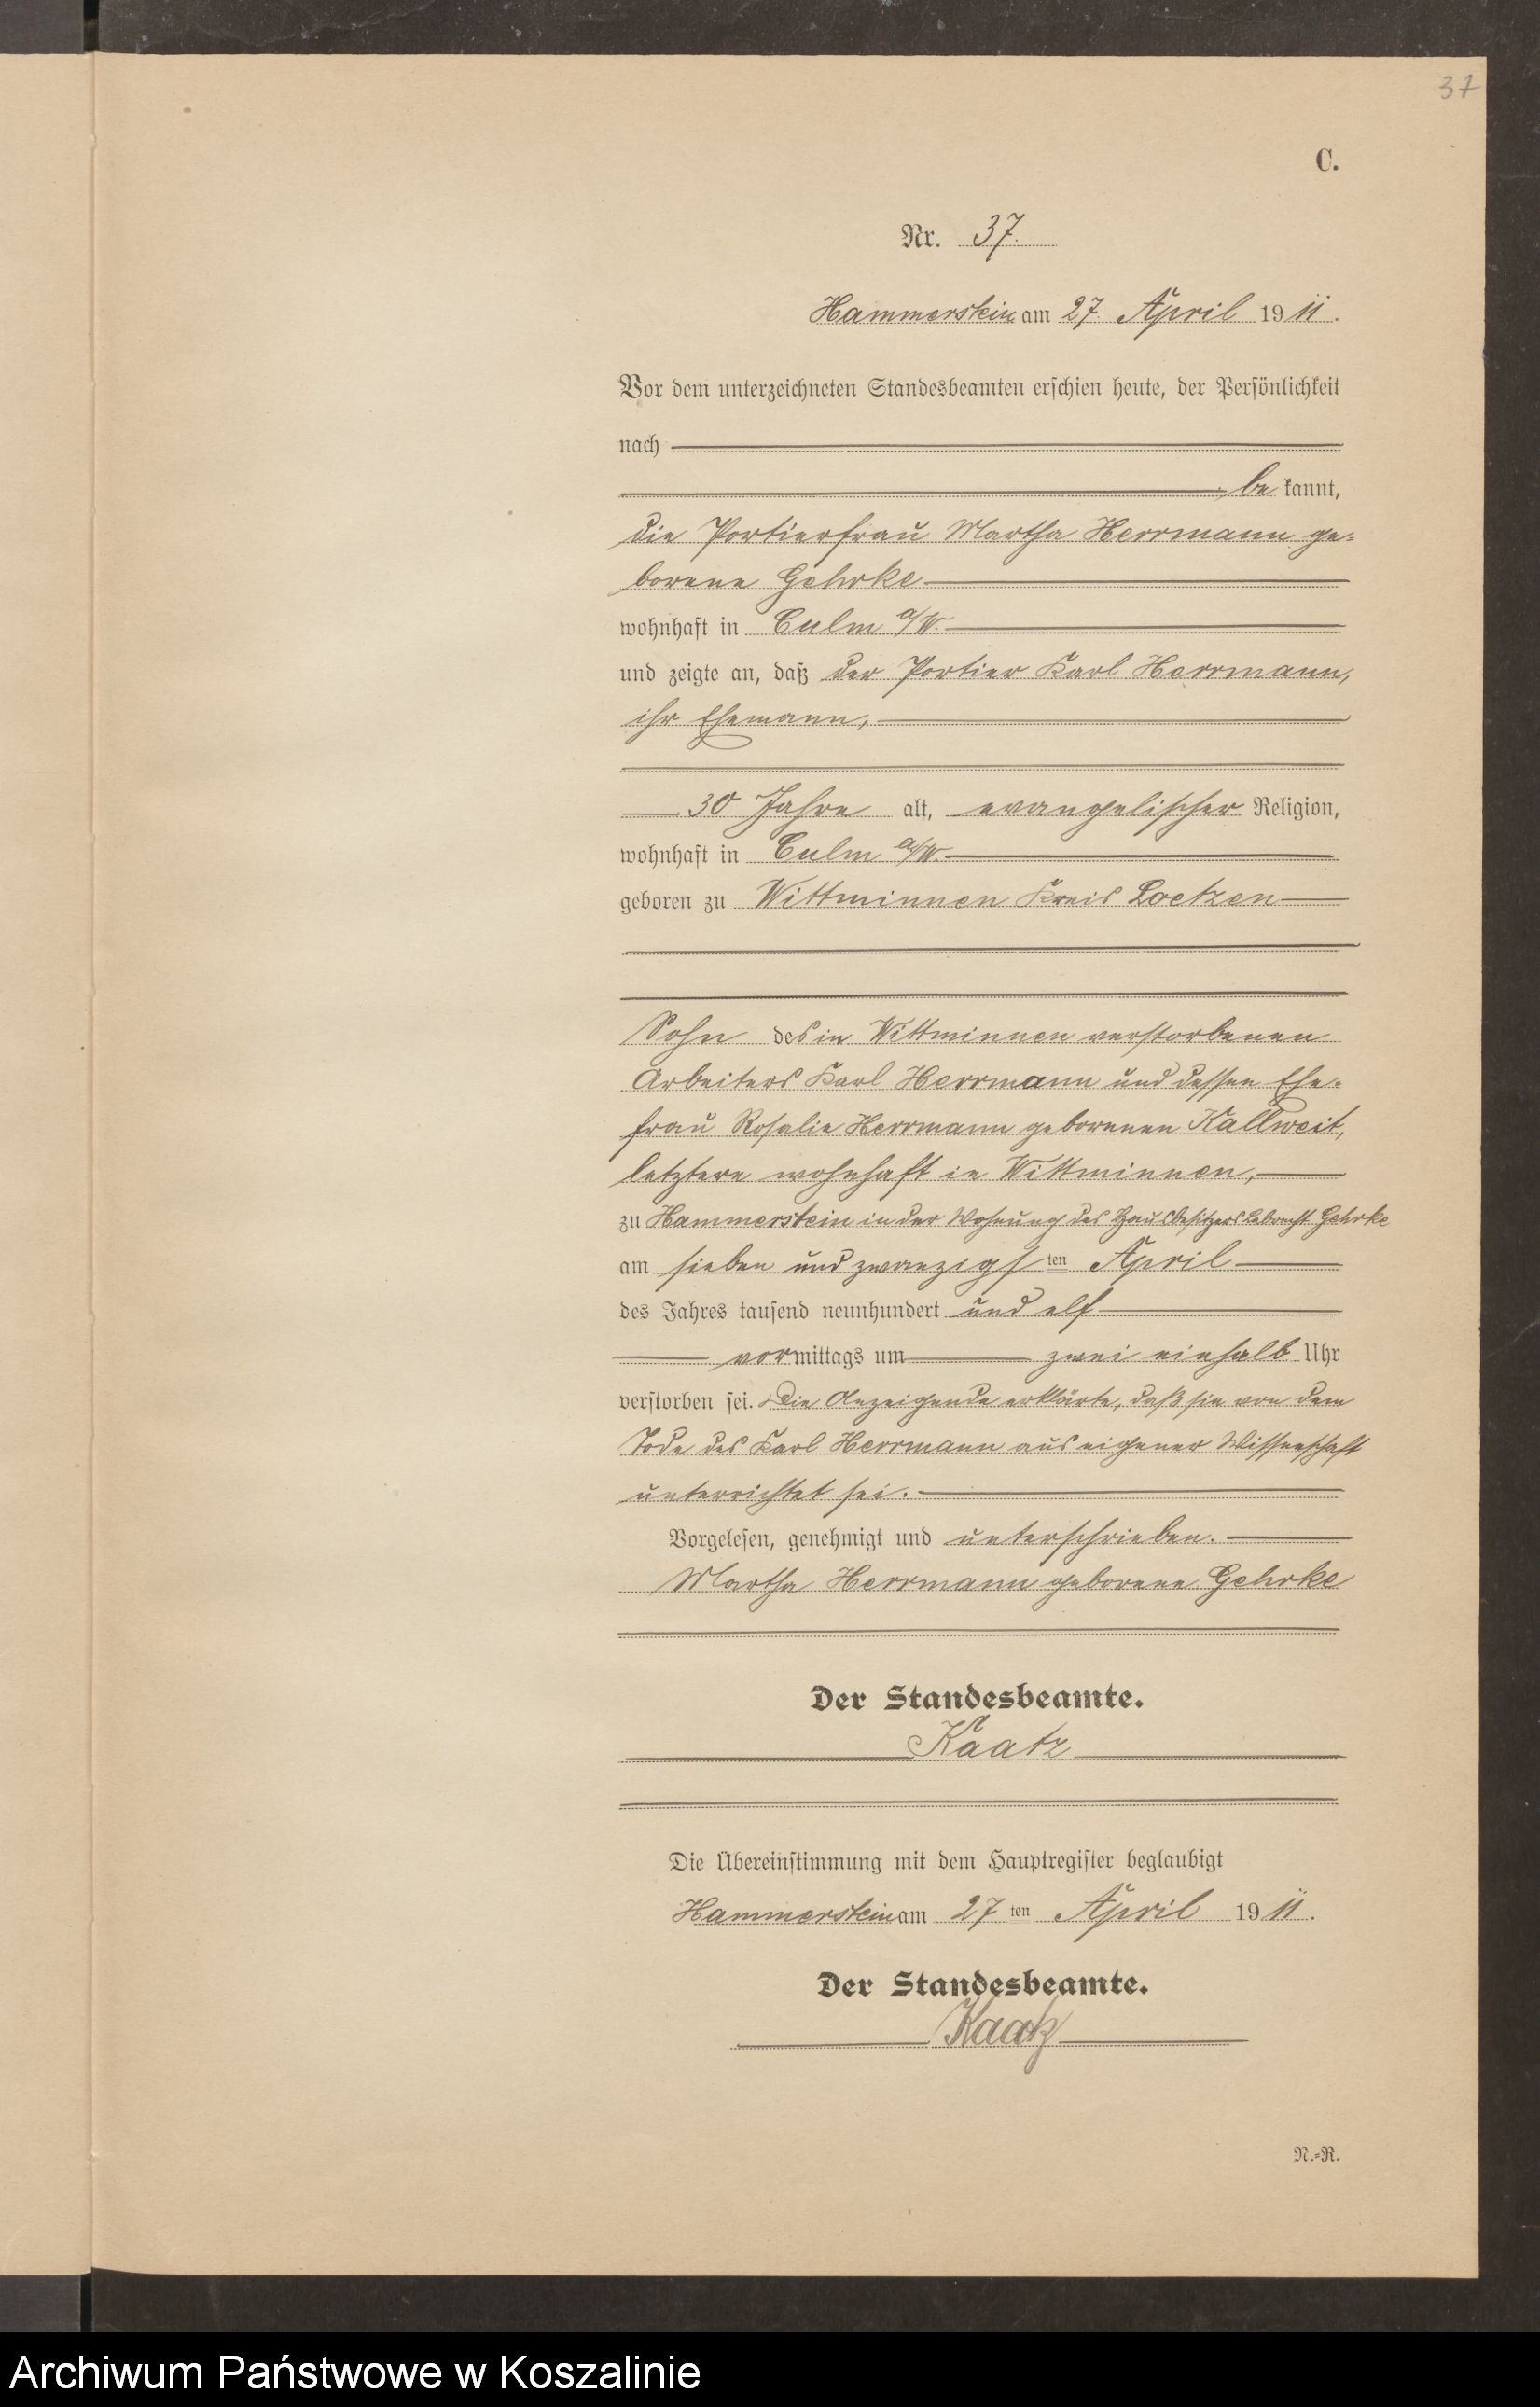 37
C.
Nr. 37.
Hammerstein am 27. April 1911.
Vor dem unterzeichneten Standesbeamten erschien heute, der Persönlichkeit
nach
be kannt,
die Portierfrau Martha Herrmann ge-
borene Gehrke
wohnhaft in Culm a/W.
und zeigte an, daß der Portier Karl Herrmann,
ihr Ehemann,
30 Jahre alt, evangelischer Religion,
wohnhaft in Culm a/W.
geboren zu Wittminnen Kreis Loetzen
Sohn des in Wittminnen verstorbenen
Arbeiters Karl Herrmann und dessen Ehe-
frau Rosalie Herrmann geborenen Kallweit,
letztere wohnhaft in Wittminnen,
zu Hammerstein in der Wohnung des Hausbesitzers Lebrecht Gehrke
am sieben und zwanzigsten April
des Jahres tausend neunhundert und elf
vormittags um zwei einhalb Uhr
verstorben sei. Die Anzeigende erklärte, daß sie von dem
Tode des Karl Herrmann aus eigener Wissenschaft
unterrichtet sei.
Vorgelesen, genehmigt und unterschrieben.
Martha Herrmann geborene Gehrke
Der Standesbeamte.
Kaatz
Die Übereinstimmung mit dem Hauptregister beglaubigt
Hammerstein am 27ten April 1911.
Der Standesbeamte.
Kaatz
N.=R.
Archiwum Państwowe w Koszalinie